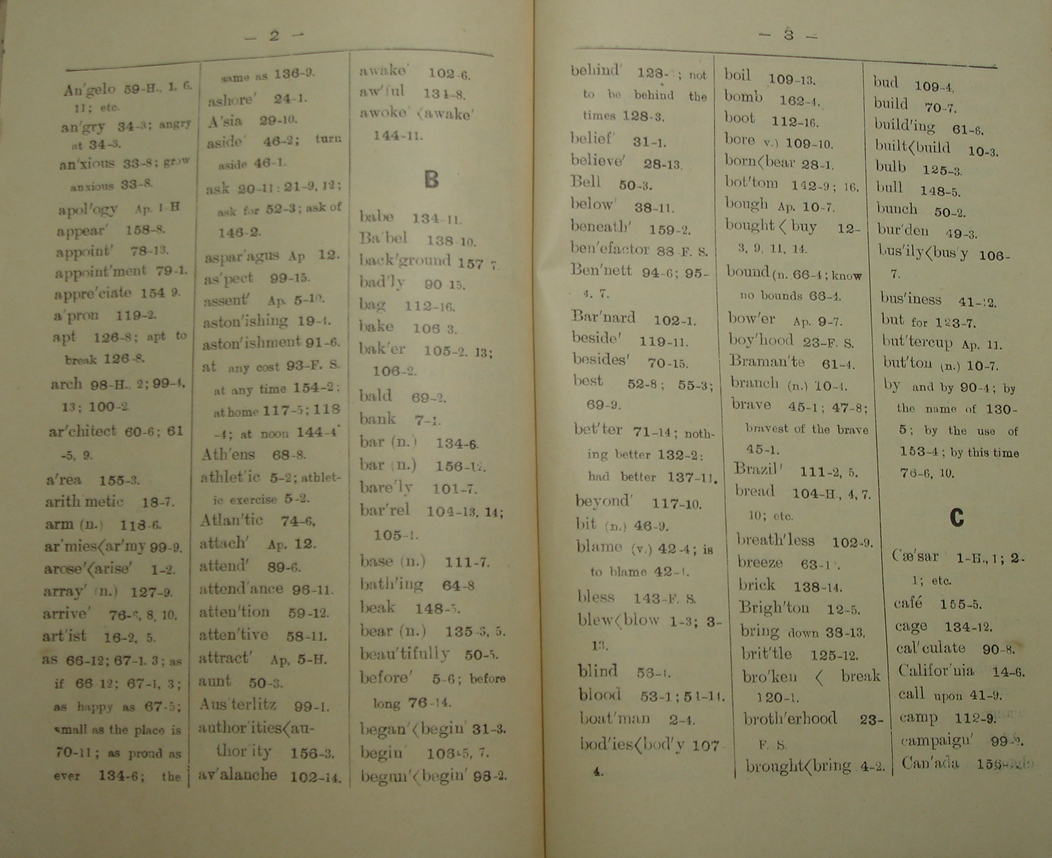 — 2 —
An'gelo 59-H., 1, 6,
11; etc.
an'gry 34-3; angry
at 34-3.
an'xious 33-8; grow
anxious 33-8.
apol'ogy Ap. 1 H
appear' 158-8.
appoint' 78-13.
appoint'ment 79-1.
appre'ciate 154 9.
a'pron 119-2.
apt 126-8; apt to
break 126-8.
arch 98-H., 2; 99-4,
13; 100-2
ar'chitect 60-6; 61
-5, 9.
a'rea 155-3.
arith metic 18-7.
arm (n.) 118-6.
ar'mies<ar'my 99-9.
arose'<arise' 1-2.
array' (n.) 127-9.
arrive' 8, 10.
art'ist 16-2, 5.
as 66-12; 67-1, 3; as
if 66 12; 67-1, 3;
as happy as 67-5;
small as the place is
70-11; as proud as
ever 134-6; the
same as 136-9.
ashore' 24-1.
A'sia 29-10.
aside' 46-2; turn
aside 46-1.
ask 20-11: 21-9, 12;
ask for 52-3; ask of
146-2.
aspar'agus Ap 12.
as'pect 99-15.
assent' Ap.
aston'ishing 19-4.
aston'ishment 91-6.
at any cost 93-F. S.
at any time 154-2;
at home 117-5; 118
-4; at noon 144-4
Ath'ens 68-8.
athlet'ic 5-2; athlet-
ic exercise 5-2.
Atlan'tic 74-6,
attach' Ap. 12.
attend' 89-6.
attend'ance 96-11.
atten'tion 59-12.
atten'tive 58-11.
attract' Ap. 5-H.
aunt 50-3.
Aus'terlitz 99-1.
author'ities<au-
thor'ity 156-3.
av'alanche 102-14.
awake' 102-6.
aw'ful 131-8.
awoke' <awake'
144-11.
B
babe 134-11.
Ba'bel 138-10.
back'ground 157 7
bad'ly 90 15.
bag 112-16.
bake 106 3.
bak'er 105-2, 13;
106-2.
bald 69-2.
bank 7-1.
bar (n.) 134-6.
bar (n.) 156-12.
bare'ly 101-7.
bar'rel 104-13, 14;
105-1.
base (n.) 111-7.
bath'ing 64-8
beak 148-5.
bear (n.) 135-3, 5.
beau'tifully 50-5.
before' 5-6; before
long 76-14.
began'<begin' 31-3.
begin' 5, 7.
begun'<begin' 93-2.
— 3 —
behind' 128- ; not
to be behind the
times 128-3.
belief' 31-1.
believe' 28-13.
Bell 50-3.
below' 38-11.
beneath' 159-2.
ben'efactor 83 F. S.
Ben'nett 94-6; 95-
4, 7.
Bar'nard 102-1.
beside' 119-11.
besides' 70-15.
best 52-8; 55-3;
69-9.
bet'ter 71-14; noth-
ing better 132-2;
had better 137-11,
beyond' 117-10.
bit (n.) 46-9.
blame (v.) 42-4; is
to blame 42-4.
bless 143-F. S.
blew<blow 1-3; 3-
13.
blind 53-1.
blood 53-1; 51-11.
boat'man 2-4.
bod'ies<bod'y 107
4.
boil 109-13.
bomb 162-4.
boot 112-16.
bore v.) 109-10.
born<bear 28-1.
bot'tom 142-9; 16.
bough Ap. 10-7.
bought < buy 12-
3, 9, 11, 14.
bound (n. 66-4; know
no bounds 66-4.
bow'er Ap. 9-7.
boy'hood 23-F. S.
Braman'te 61-4.
branch (n.) 10-4.
brave 45-1; 47-8;
bravest of the brave
45-1.
Brazil' 111-2, 5.
bread 104-H, 4, 7.
10; etc.
breath'less 102-9.
breeze
brick 138-14.
Brigh'ton 12-5.
bring down 38-13.
brit'tle 125-12.
bro'ken < break
120-1.
broth'erhood 23-
F. S.
brought<bring 4-2.
bud 109-4.
build 70-7.
build'ing 61-6.
built<build 10-3.
bulb 125-3.
bull 148-5.
bunch 50-2.
bur'den 49-3.
bus'ily<bus'y 106-
7.
bus'iness 41-12.
but for 123-7.
but'tercup Ap. 11.
but'ton (n.) 10-7.
by and by 90-4; by
the name of 130-
5; by the use of
153-4; by this time
76-6, 10.
C
Cæ'sar 1-H., 1; 2-
1; etc.
café 155-5.
cage 134-12.
cal'culate 90-8.
Califor'nia 14-6.
call upon 41-9.
camp 112-9.
campaign' 99-9.
Can'ada